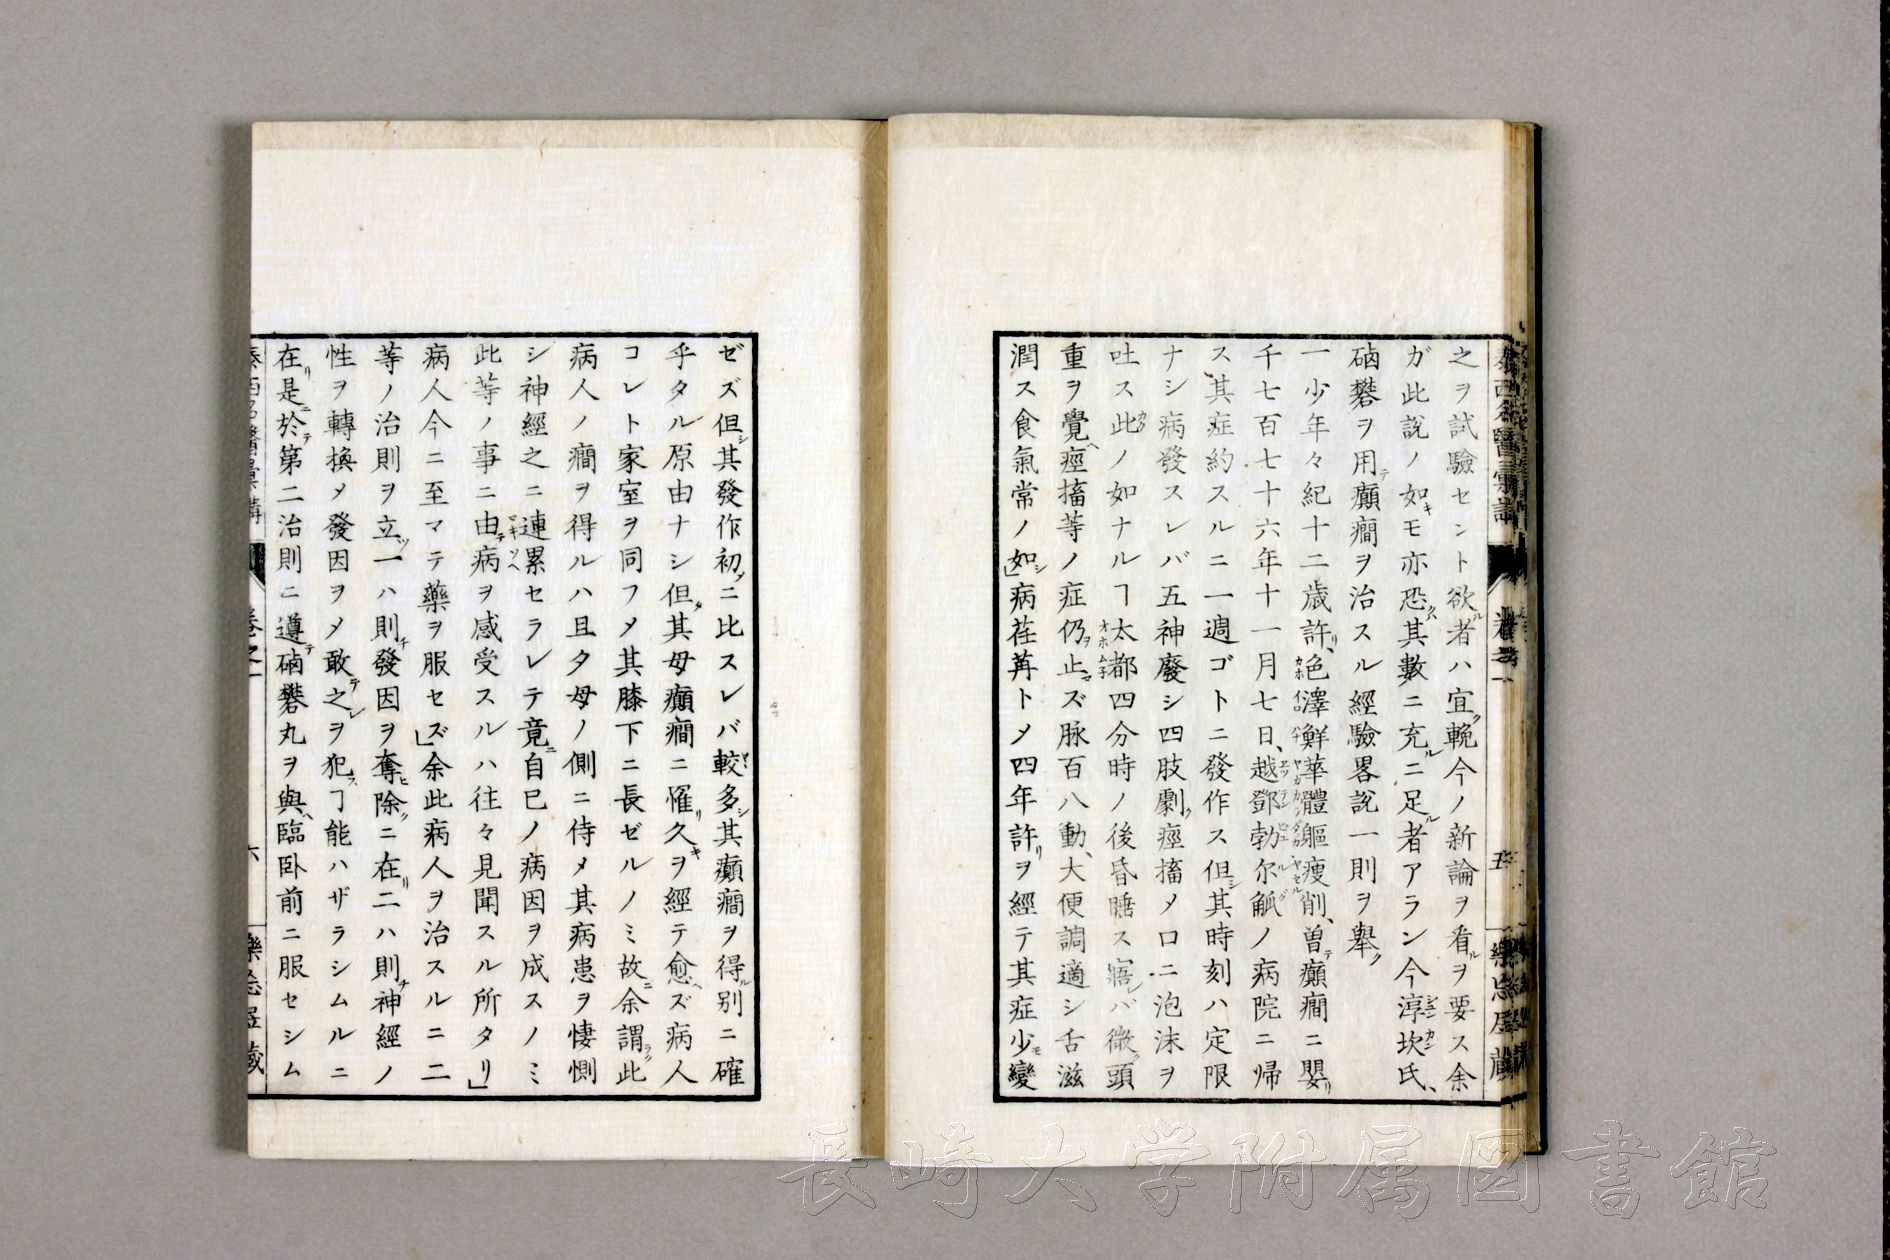 之ヲ試驗セント欲ル者ハ宜ク輓今ノ新論ヲ看ルヲ要ス余
ガ此説ノ如キモ亦恐クハ其數ニ充ルニ足ル者アラン今淳坎氏、
硇礬ヲ用テ癲癇ヲ治スル經驗畧説一則ヲ擧ク
一少年々紀十二歳許リ、色澤鮮華體軀瘦削、曽テ癲癇ニ嬰リ
千七百七十六年十一月七日、越鄧勃尔觚ノ病院ニ帰
ス其症約スルニ一週ゴトニ發作ス但シ其時刻ハ定限
ナシ病發スレバ五神廢シ四肢劇ク瘂搐メ口ニ泡沫ヲ
吐ス此カクノ如ナルヿ太都四分時ノ後昏睡ス寤レバ微ク頭
重ヲ覺ヘ瘂搐等ノ症仍ヲ止マズ脉百八動、大便調適シ舌滋
潤ス食氣常ノ如シ」病荏苒トメ四年許リヲ經テ其症少モ變
ゼズ但シ其發作初メニ比スレバ較ヤヽ多シ其癲癇ヲ得ル別ニ確
乎タル原由ナシ但タ其母癲癇ニ罹リ久キヲ經テ愈ヘズ病人
コレト家室ヲ同フメ其膝下ニ長ゼルノミ故ニ余謂ラク此
病人ノ癇ヲ得ルハ且夕母ノ側ニ侍メ其病患ヲ悽惻
シ神經之ニ連累セラレテ竟ニ自已ノ病因ヲ成スノミ
此等ノ事ニ由テ病ヲ感受スルハ往々見聞スル所タリ」
病人今ニ至マテ藥ヲ服セズ」余此病人ヲ治スルニ二
等ノ治則ヲ立ツ一ハ則チ發因ヲ奪ヒ除クニ在リ二ハ則チ神經ノ
性ヲ轉換メ發因ヲメ敢テ之レヲ犯スヿ能ハザラシムルニ
在リ是ニ於テ第二治則ニ遵テ硇礬丸ヲ與ヘ臨卧前ニ服セシム
長崎大学附属図書館